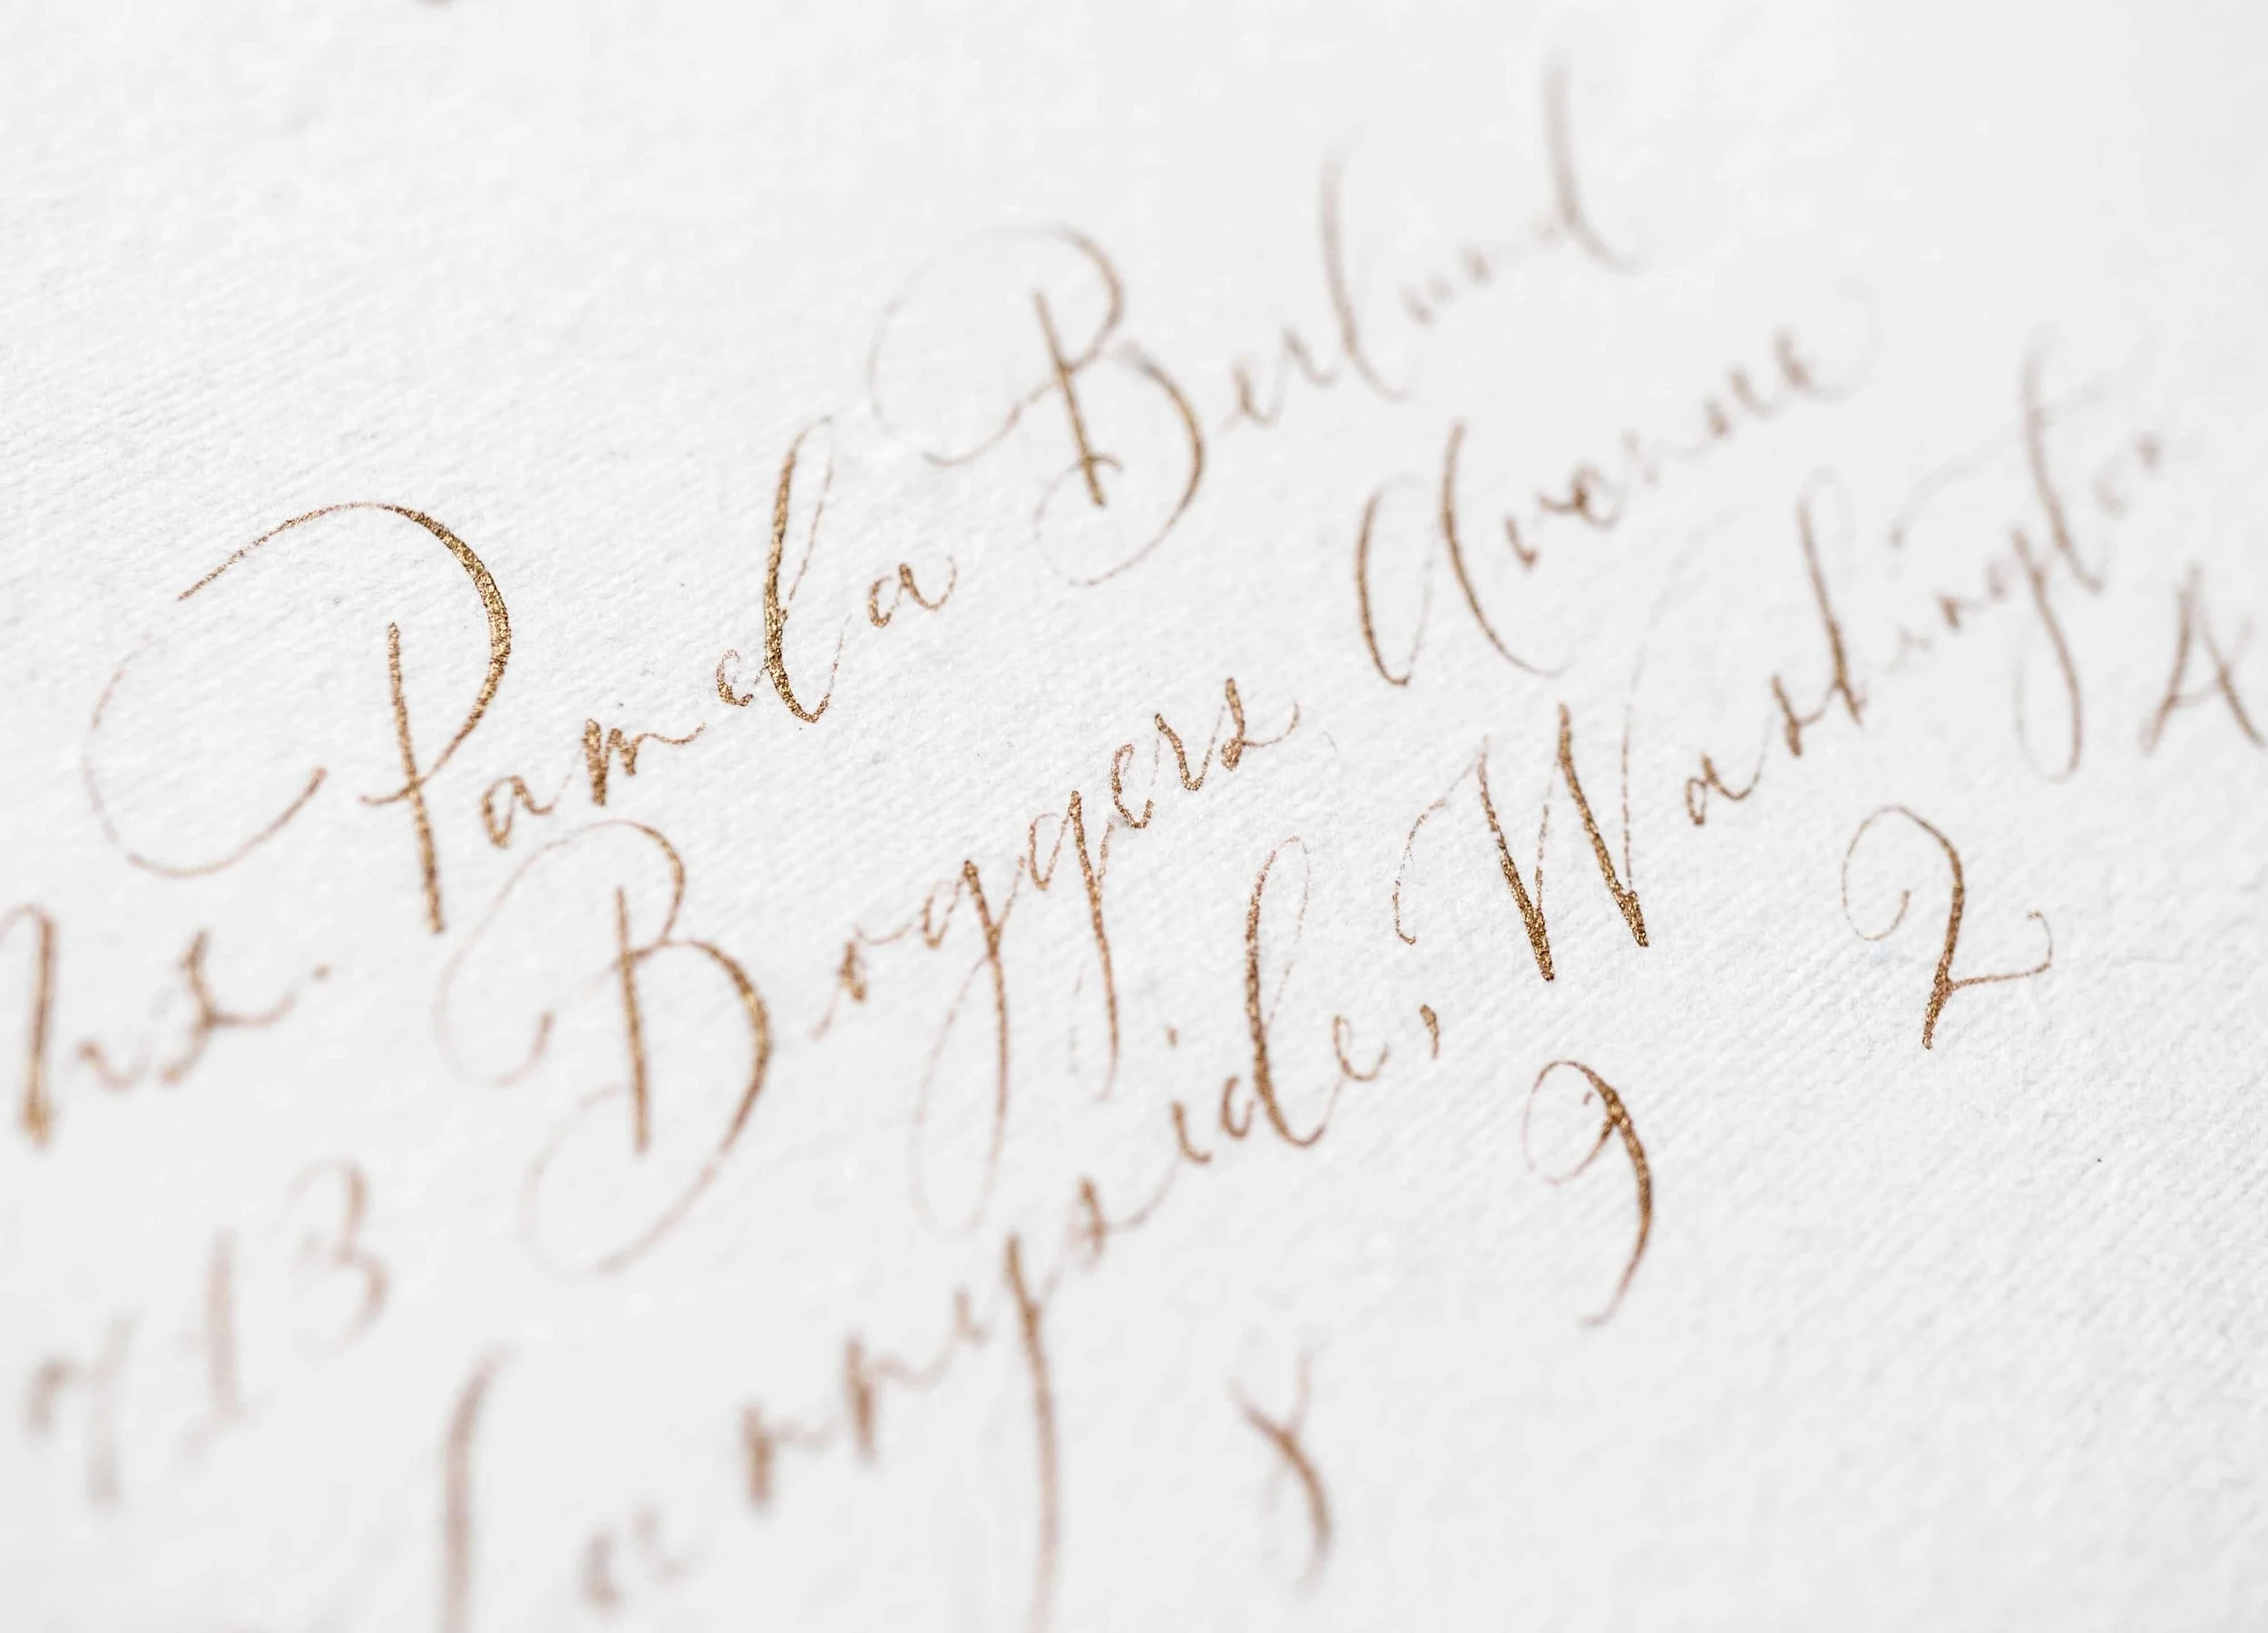 Mrs. Pamela Berland
713 Boggers Avenue
Sunnyside, Washington
8 9 2 A